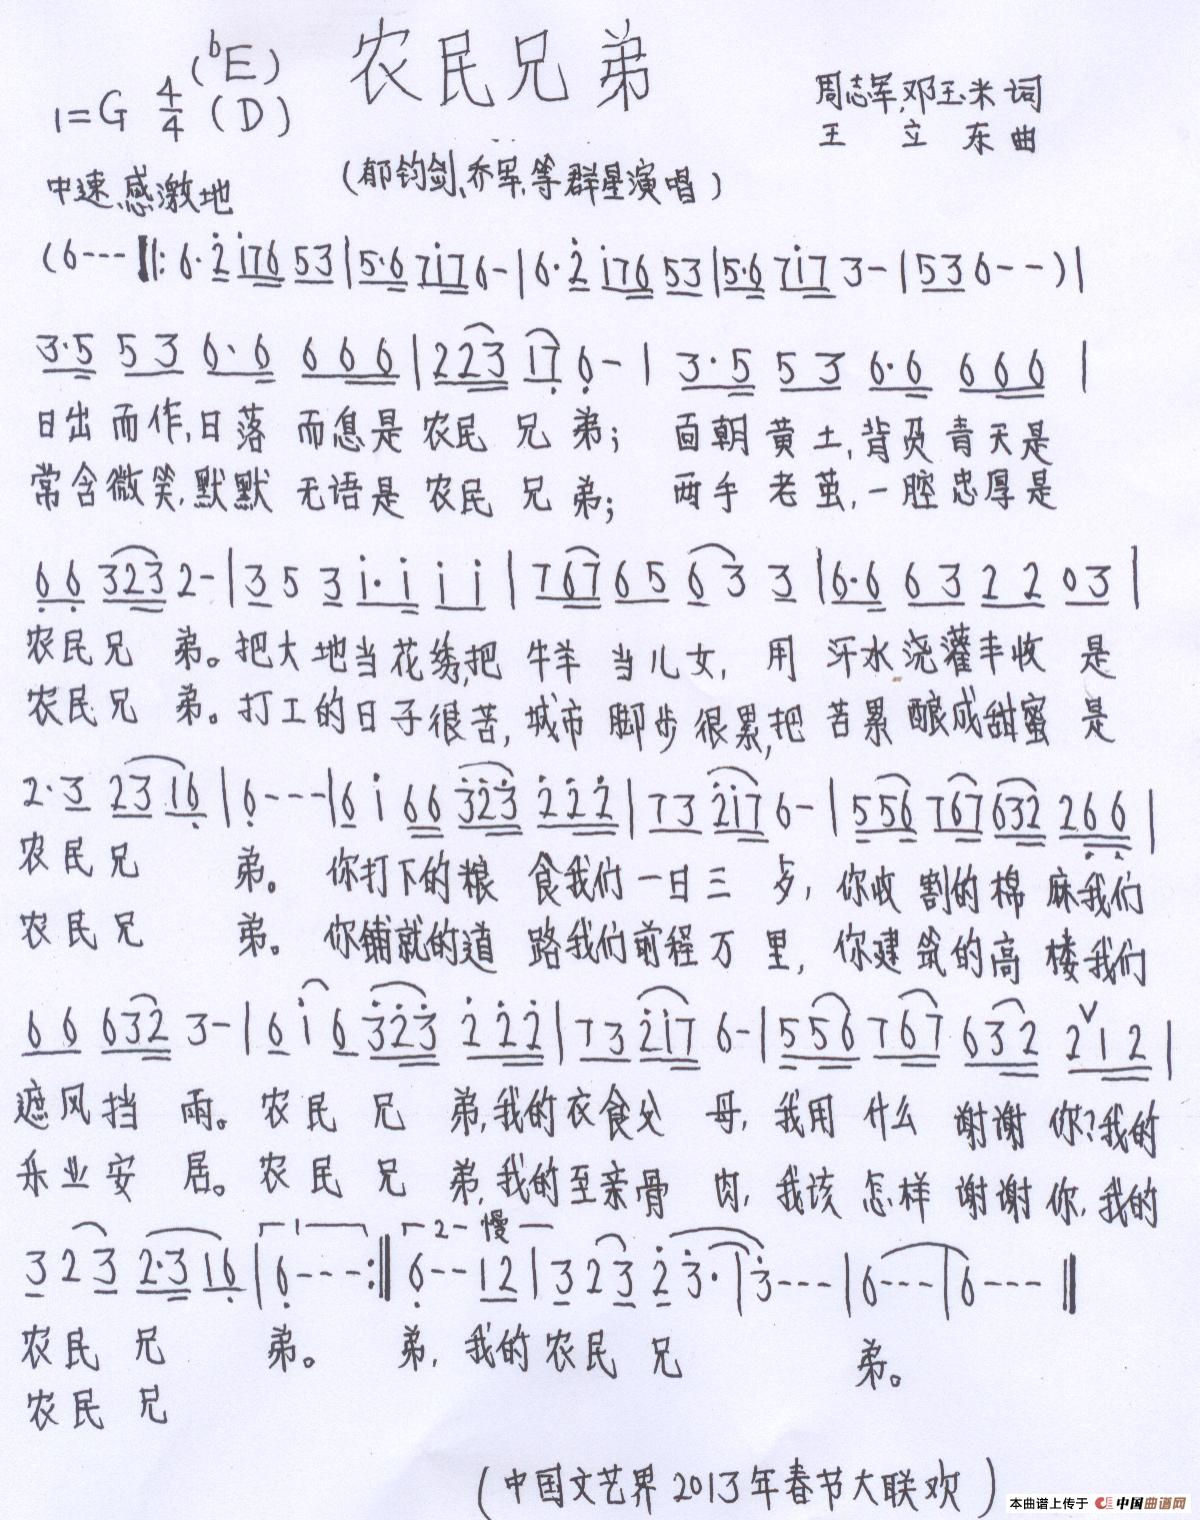 农民兄弟
(♭E)
1=G 4/4 (D)
周志军、邓玉米 词
王立东 曲
中速、感激地
(郁钧剑、乔军、等群星演唱)
(6--- ‖: 6·2̇ i̇76 53 | 5·6 7i̇7 6- | 6·2̇ i̇76 53 | 5·6 7i̇7 3- | 53 6--) |
3·5 53 6·6 666 | 223 17̣ 6̣- | 3·5 53 6·6 666 |
日出而作,日落 而息是 农民 兄 弟; 面朝黄土,背负青天是
常含微笑,默默 无语是 农民 兄 弟; 两手老茧,一腔忠厚是
6̣6̣ 323 2- | 3 5 3 i̇·i̇ i̇ i̇ | 767 65 63 3 | 6·6 63 22 03 |
农民兄 弟。把大地当花绣,把 牛羊 当儿女, 用 汗水浇灌丰收 是
农民兄 弟。打工的日子很苦, 城市 脚步很累,把 苦累酿成甜蜜 是
2·3 2316̣ | 6̣--- | 6 i̇ 66 3̇2̇3̇ 2̇2̇2̇ | 73 2̇i̇7 6- | 556 767 632 26̣6̣ |
农民兄 弟。 你打下的粮 食我们一日三 岁, 你收割的棉 麻我们
农民兄 弟。 你铺就的道 路我们前程万 里, 你建筑的高 楼我们
66 632 3- | 6 i̇ 6 3̇2̇3̇ 2̇2̇2̇ | 73 2̇i̇7 6- | 556 767 632 2∨12 |
遮风挡 雨。 农民兄 弟,我的衣食父 母, 我用什么 谢谢你?我的
乐业安 居。 农民兄 弟,我的至亲骨 肉, 我该怎样 谢谢你,我的
1 2 慢
3 2 3 2·3 16̣ | 6̣---:‖ 6̣--12 | 3 2 3 2̇ 3̇· | 3̇--- | 6--- | 6--- ‖
农民 兄 弟。 弟, 我的农民 兄 弟。
农民 兄
(中国文艺界2013年春节大联欢)
本曲谱上传于 中国曲谱网